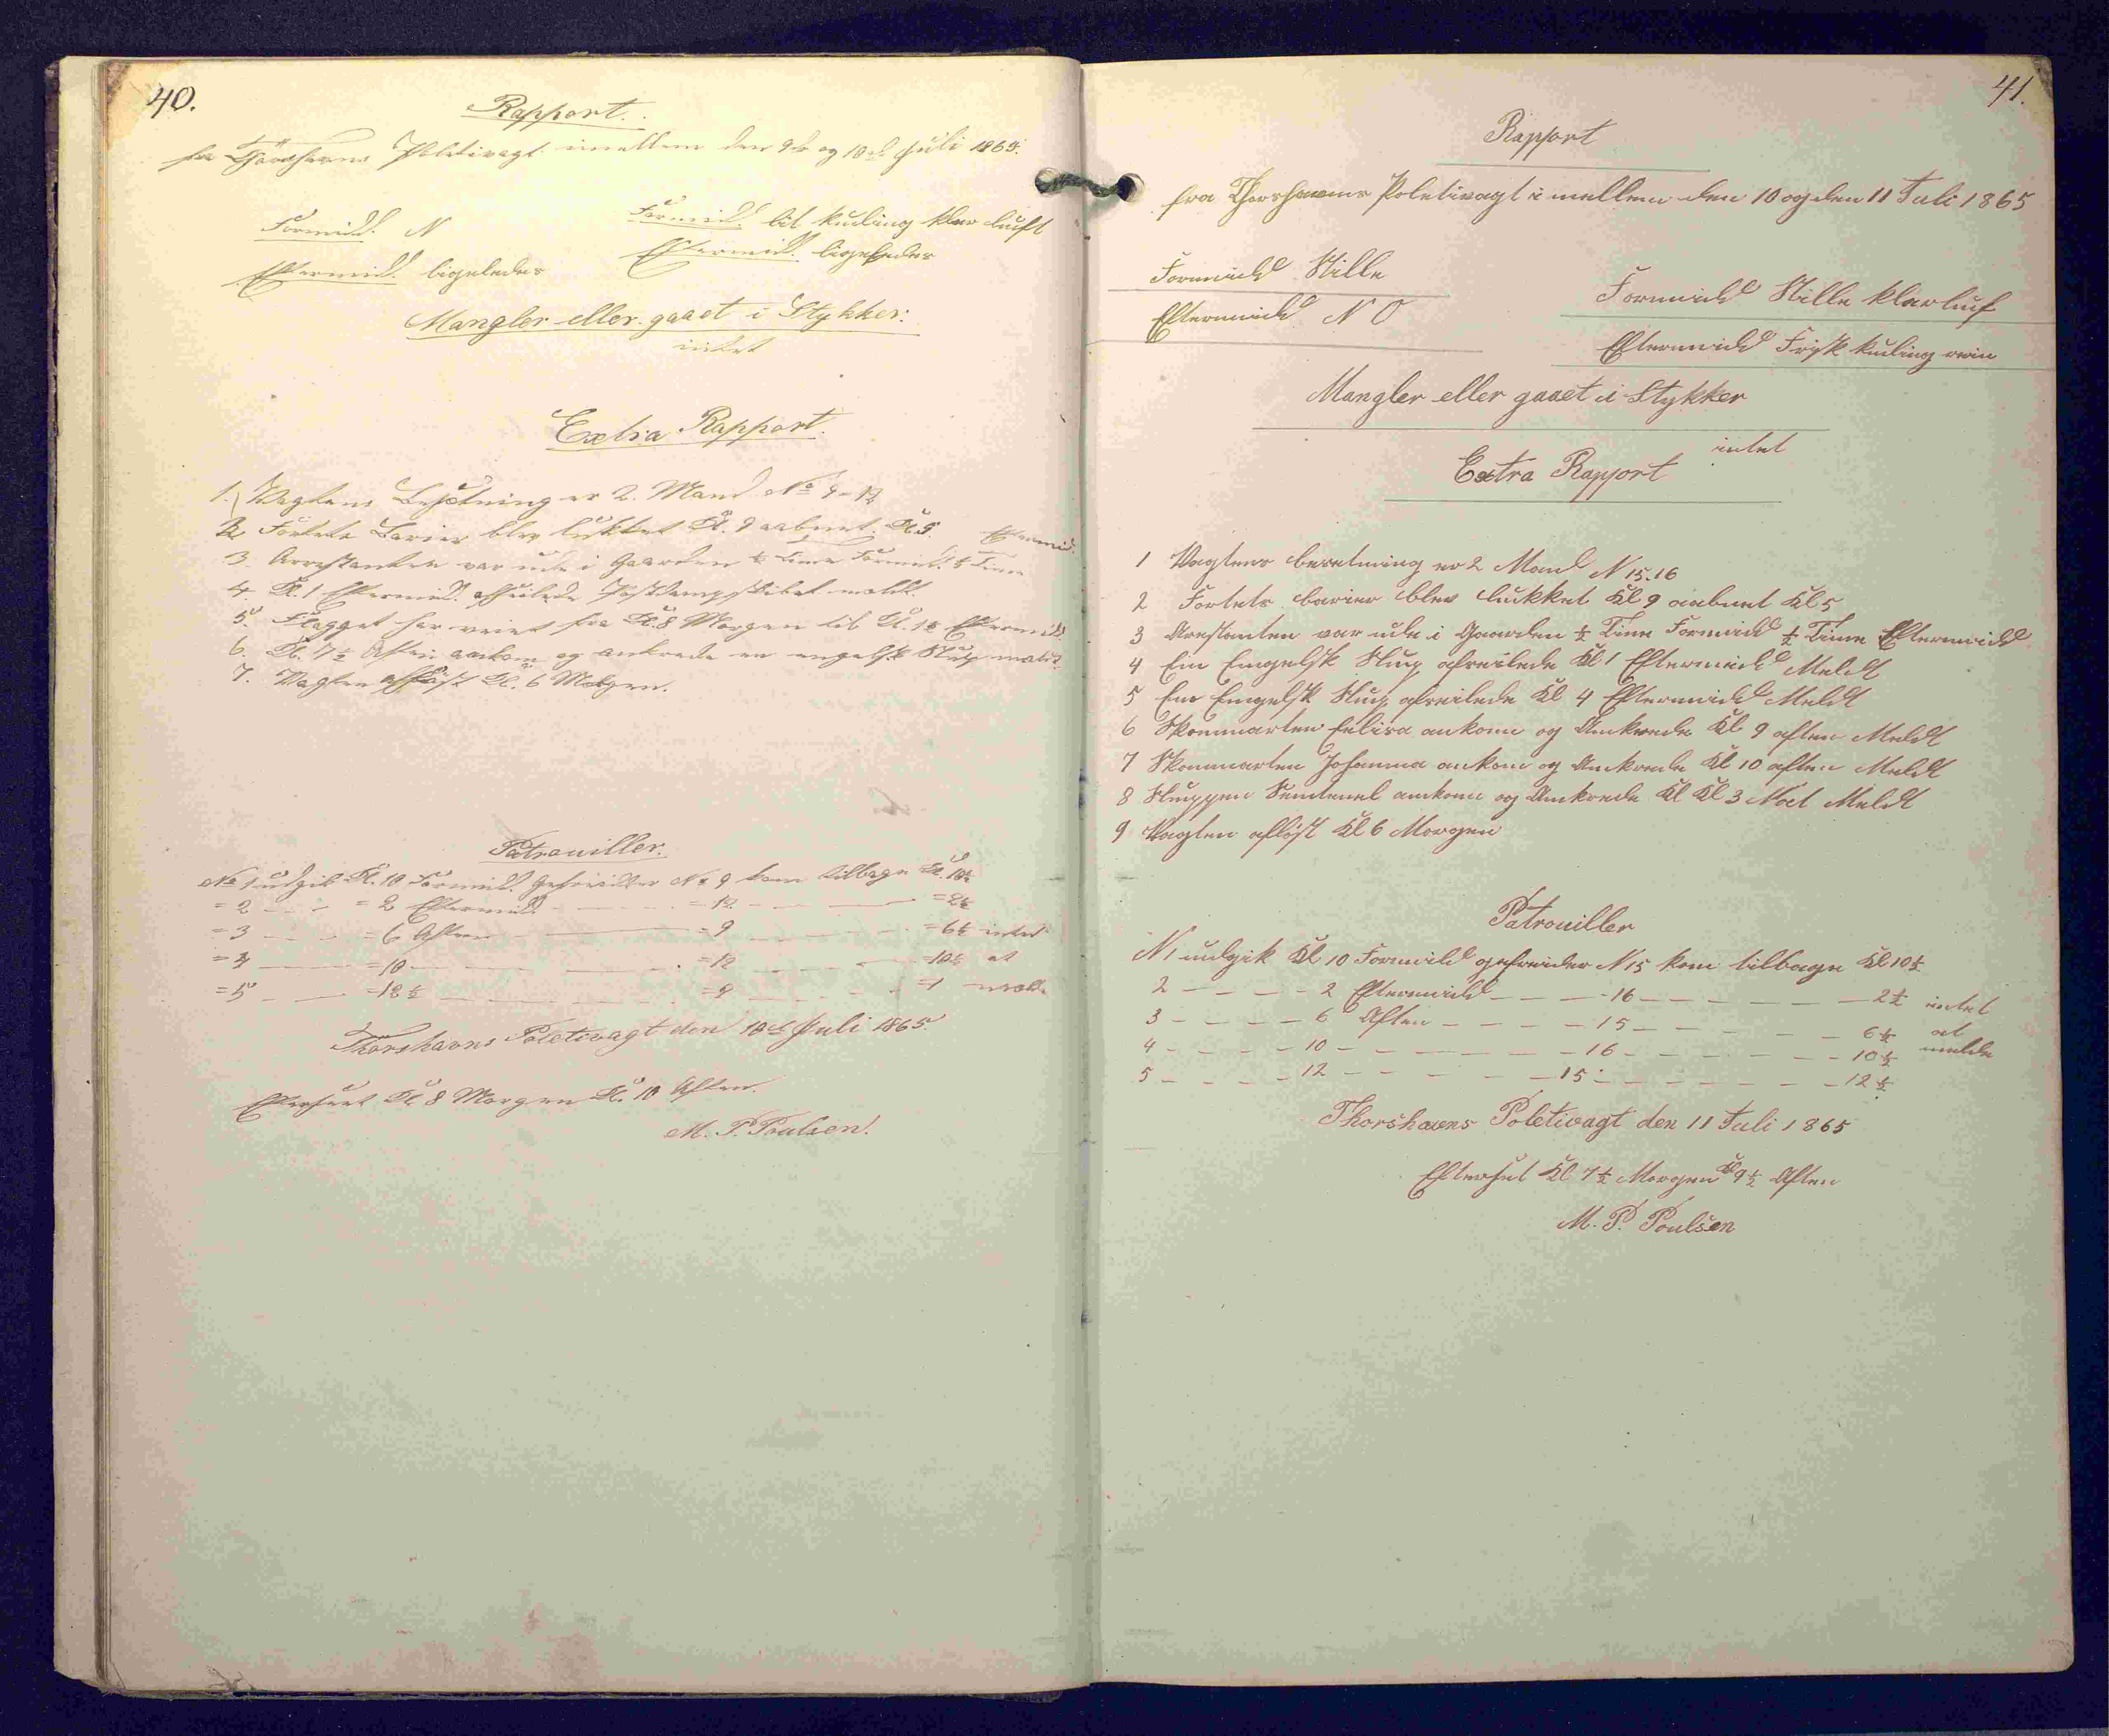 40.
Rapport.
fra Thorshavns Politivagt imellem den 9de og 10de Juli 1865.
Formidd. N
Formidd. lit kuling klar luft
Eftermidd. ligeledes
Eftermidd. ligeledes
Mangler eller gaaet i Stykker:
intet
Extra Rapport.
1. Vagtens Besætning er 2. Mand No 9-12
2 Fortets Barier blev lukket Kl. 9 aabnet Kl. 5
3. Arrestanten var ude i Gaarden ½ Time Formidd. ½ Time Eftermid.
4. Kl. 1 Eftermid. afseilede Postdampskibet meldt.
5. Flagget har veiet fra Kl. 8 Morgen til Kl. Eftermidd.
6. Kl. 7½ Aften ankom og ankrede en engelsk Slup meldt.
7. Vagten afløst Kl. 6 Morgen.
Patrouiller.
No 1 udgik Kl. 10 Formidd. Gefreider No 9 kom tilbage Kl. 10½
= 2 - - - = 2 Eftermidd. - - - = 12 - - - = 2½
= 3 - - - = 6 Aften - - - = 9 - - - = 6½ intet
= 4 - - - = 10 - - - = 12 - - - = 10½ at
= 5 - - - = 12½ - - - = 9 - - - = 1 melde
Thorshavns Poletivagt den 10de Juli 1865.
Efterseet Kl 8 Morgen Kl. 10 Aften.
M. P. Poulsen.
41.
Rapport
fra Thorshavns Poletivagt i mellem den 10 og den 11 Juli 1865
Formidd Stille
Formidd Stille klar luf
Eftermidd N O
Eftermidd Frisk kuling rein
Mangler eller gaaet i Stykker
intet
Extra Rapport
1 Vagtens besetning er 2 Mand N 15.16
2 Fortets barier blev lukket Kl 9 aabnet Kl 5
3 Arestanten var ude i Gaarden ½ Time Formidd ½ Time Eftermidd
4 En Engelsk Slup afreilede Kl 1 Eftermidd Meldt
5 En Engelsk Slup afreilede Kl 4 Eftermidd Meldt
6 Skonnarten Eelisa ankom og Ankrede Kl 9 aften Meldt
7 Skonnarten Johanna ankom og Ankrede Kl 10 aften Meldt
8 Sluppen Sentenel ankom og Ankrede Kl Kl 3 Nat Meldt
9 Vagten afløst Kl 6 Morgen
Patrouiller
N 1 udgik Kl 10 Formidd gefreider N 15 kom tilbage Kl 10½
2 - - - - 2 Eftermidd - - - - 16 - - - - 2½ intet
3 - - - - 6 Aften - - - - 15 - - - - 6½ at
4 - - - - 10 - - - - 16 - - - - 10½ melde
5 - - - - 12 - - - - 15 - - - - 12½
Thorshavns Poletivagt den 11 Juli 1865
Efterset Kl 7½ Morgen Kl 9½ Aften
M. P. Poulsen